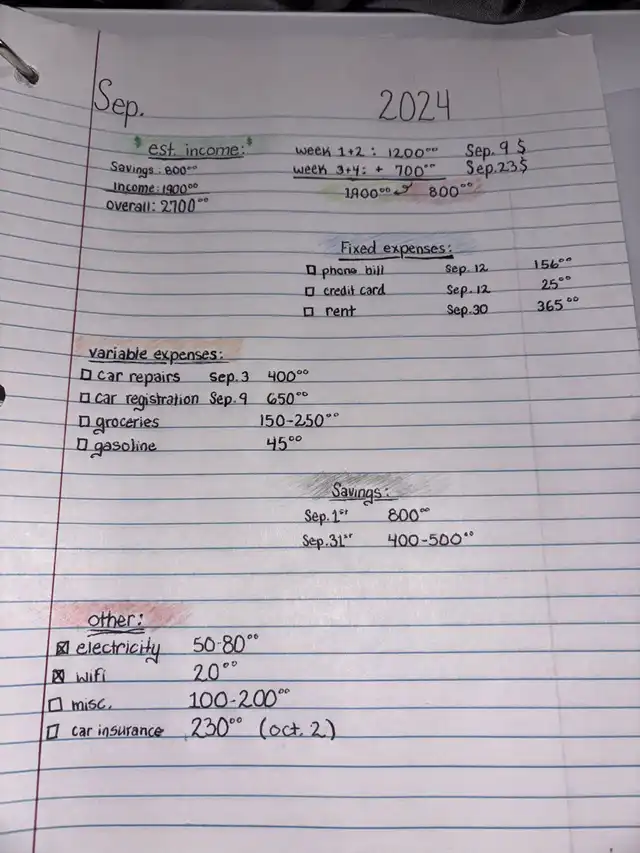 Sep. 2024
$ est. income: $
Savings: 800⁰⁰
Income: 1900⁰⁰
overall: 2700⁰⁰
week 1+2: 1200⁰⁰ Sep. 9 $
week 3+4: + 700⁰⁰ Sep. 23 $
1900⁰⁰ 800⁰⁰
Fixed expenses:
☐ phone bill Sep. 12 156⁰⁰
☐ credit card Sep. 12 25⁰⁰
☐ rent Sep. 30 365⁰⁰
variable expenses:
☐ car repairs Sep. 3 400⁰⁰
☐ car registration Sep. 9 650⁰⁰
☐ groceries 150-250⁰⁰
☐ gasoline 45⁰⁰
Savings:
Sep. 1ˢᵗ 800⁰⁰
Sep. 31ˢᵗ 400-500⁰⁰
other:
☒ electricity 50-80⁰⁰
☒ wifi 20⁰⁰
☐ misc. 100-200⁰⁰
☐ car insurance 230⁰⁰ (oct. 2)